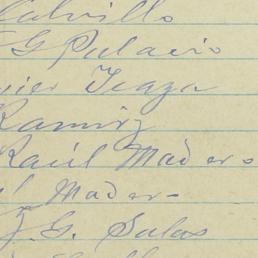 Calvillo
G Palacio
Icaza
Ramirz
Raúl Madero
Mader
J. G. Salas